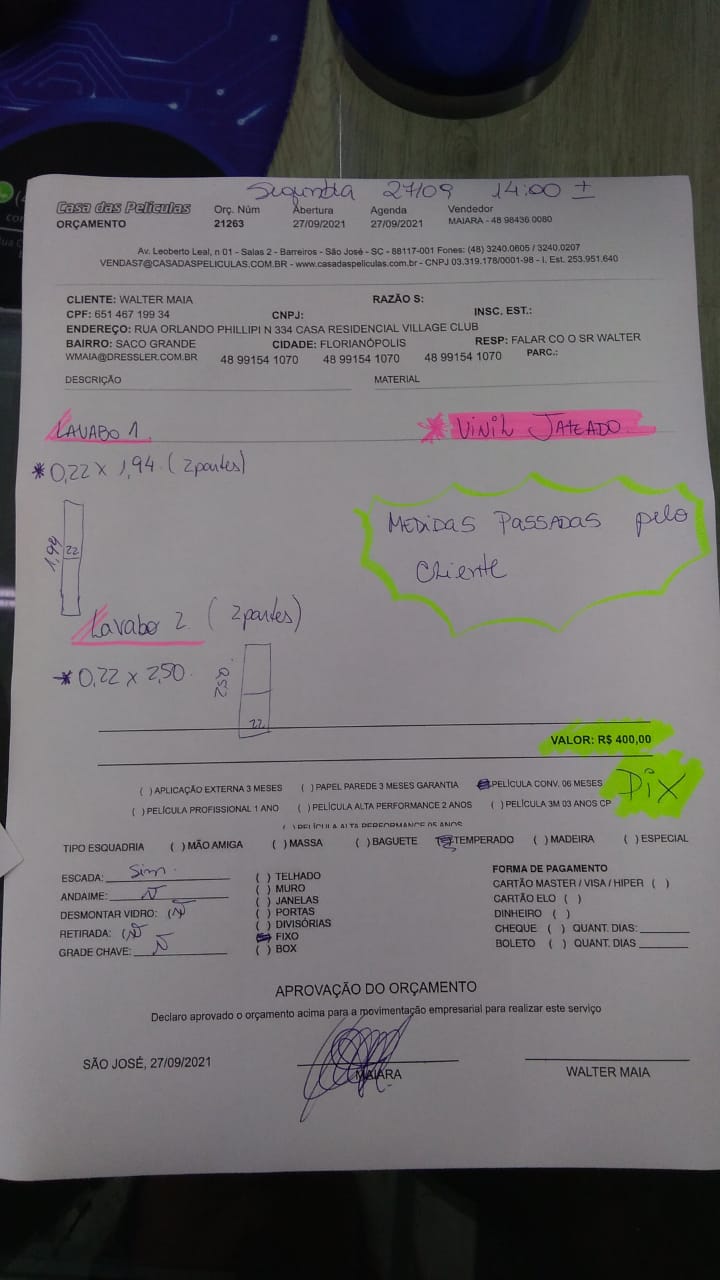 Segunda 27/09 14:00 ±
Casa das Películas Orç. Núm Abertura Agenda Vendedor
ORÇAMENTO 21263 27/09/2021 27/09/2021 MAIARA - 48 98436 0080
Av. Leoberto Leal, n 01 - Salas 2 - Barreiros - São José - SC - 88117-001 Fones: (48) 3240.0605 / 3240.0207
VENDAS7@CASADASPELICULAS.COM.BR - www.casadaspeliculas.com.br - CNPJ 03.319.178/0001-98 - I. Est. 253.951.640
CLIENTE: WALTER MAIA RAZÃO S:
CPF: 651 467 199 34 CNPJ: INSC. EST.:
ENDEREÇO: RUA ORLANDO PHILLIPI N 334 CASA RESIDENCIAL VILLAGE CLUB
BAIRRO: SACO GRANDE CIDADE: FLORIANÓPOLIS RESP: FALAR CO O SR WALTER
WMAIA@DRESSLER.COM.BR 48 99154 1070 48 99154 1070 48 99154 1070 PARC.:
DESCRIÇÃO MATERIAL
LAVABO 1 * VINIL JATEADO
* 0,22 x 1,94 (2 partes)
1,94 22
MEDIDAS PASSADAS pelo
Cliente
Lavabo 2 (2 partes)
* 0,22 x 2,50
2,50 22
VALOR: R$ 400,00
PIX
( ) APLICAÇÃO EXTERNA 3 MESES ( ) PAPEL PAREDE 3 MESES GARANTIA PELÍCULA CONV. 06 MESES
( ) PELÍCULA PROFISSIONAL 1 ANO ( ) PELÍCULA ALTA PERFORMANCE 2 ANOS ( ) PELÍCULA 3M 03 ANOS CP
( ) PELÍCULA ALTA PERFORMANCE 05 ANOS
TIPO ESQUADRIA ( ) MÃO AMIGA ( ) MASSA ( ) BAGUETE TEMPERADO ( ) MADEIRA ( ) ESPECIAL
ESCADA: Sim
ANDAIME: Ñ
DESMONTAR VIDRO: (Ñ
RETIRADA: (Ñ
GRADE CHAVE: Ñ
( ) TELHADO
( ) MURO
( ) JANELAS
( ) PORTAS
( ) DIVISÓRIAS
FIXO
( ) BOX
FORMA DE PAGAMENTO
CARTÃO MASTER / VISA / HIPER ( )
CARTÃO ELO ( )
DINHEIRO ( )
CHEQUE ( ) QUANT. DIAS:
BOLETO ( ) QUANT. DIAS
APROVAÇÃO DO ORÇAMENTO
Declaro aprovado o orçamento acima para a movimentação empresarial para realizar este serviço
SÃO JOSÉ, 27/09/2021 MAIARA WALTER MAIA